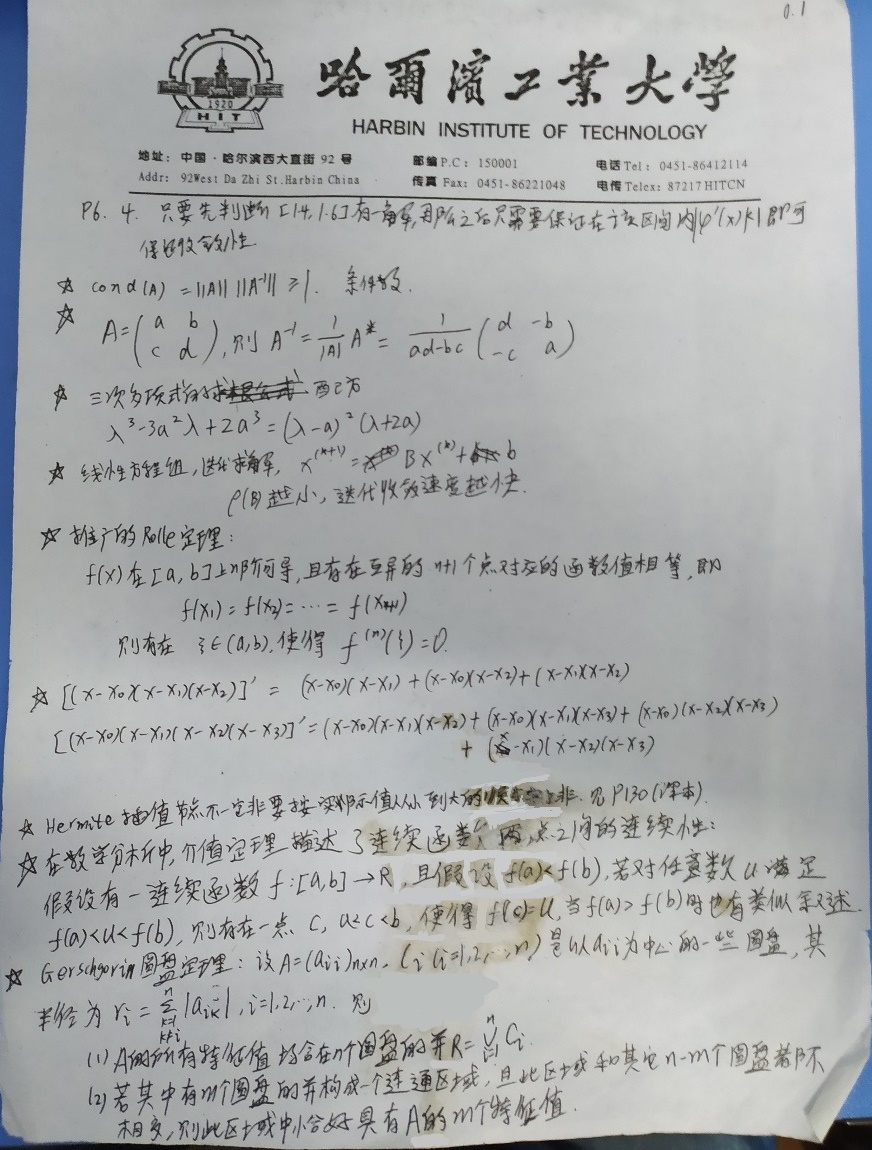 0.1
1920
HIT
哈爾濱工業大學
HARBIN INSTITUTE OF TECHNOLOGY
地址：中国·哈尔滨西大直街 92 号 邮编 P.C: 150001 电话 Tel: 0451-86412114
Addr: 92West Da Zhi St.Harbin China 传真 Fax: 0451-86221048 电传 Telex: 87217 HITCN
P6. 4. 只要先判断 [1.4, 1.6] 有一解, 那么之后只需要保证在该区间内|φ'(x)|<1 即可
保证收敛性
☆ cond(A) = ||A|| ||A⁻¹|| ≥ 1. 条件数.
☆ A = (a b; c d), 则 A⁻¹ = 1/|A| A* = 1/(ad-bc) (d -b; -c a)
☆ 三次多项式的 配方
λ³-3a²λ+2a³ = (λ-a)²(λ+2a)
☆ 线性方程组, 迭代求解, x^(k+1) = Bx^(k) + b
ρ(B)越小, 迭代收敛速度越快.
☆ 推广的 Rolle 定理:
f(x) 在 [a,b] 上n阶可导, 且存在互异的 n+1 个点对应的函数值相等, 即
f(x₁) = f(x₂) = ⋯ = f(xₙ₊₁)
则存在 ξ∈(a,b), 使得 f^(n)(ξ) = 0.
☆ [(x-x₀)(x-x₁)(x-x₂)]' = (x-x₀)(x-x₁) + (x-x₀)(x-x₂) + (x-x₁)(x-x₂)
[(x-x₀)(x-x₁)(x-x₂)(x-x₃)]' = (x-x₀)(x-x₁)(x-x₂) + (x-x₀)(x-x₁)(x-x₃) + (x-x₀)(x-x₂)(x-x₃)
+ (x-x₁)(x-x₂)(x-x₃)
☆ Hermite 插值节点不一定非要按实际值从小到大的 见 P130 (课本).
☆ 在数学分析中, 介值定理描述了连续函数两点之间的连续性:
假设有一连续函数 f: [a,b] → R, 且假设 f(a)<f(b), 若对任意数 u 满足
f(a)<u<f(b), 则存在一点 c, a<c<b, 使得 f(c)=u, 当 f(a)>f(b) 时也有类似叙述.
☆ Gerschgorin 圆盘定理: 设 A=(aᵢⱼ)n×n, Cᵢ (i=1,2,⋯,n) 是以 aᵢᵢ 为中心的一些圆盘, 其
半径为 rᵢ = Σ(k=1, k≠i)ⁿ |aᵢₖ|, i=1,2,⋯,n. 则
(1) A的所有特征值均含在n个圆盘的并 R = ∪(i=1)ⁿ Cᵢ.
(2) 若其中有m个圆盘的并构成一个连通区域, 且此区域和其它 n-m 个圆盘都不
相交, 则此区域中恰好具有A的m个特征值.